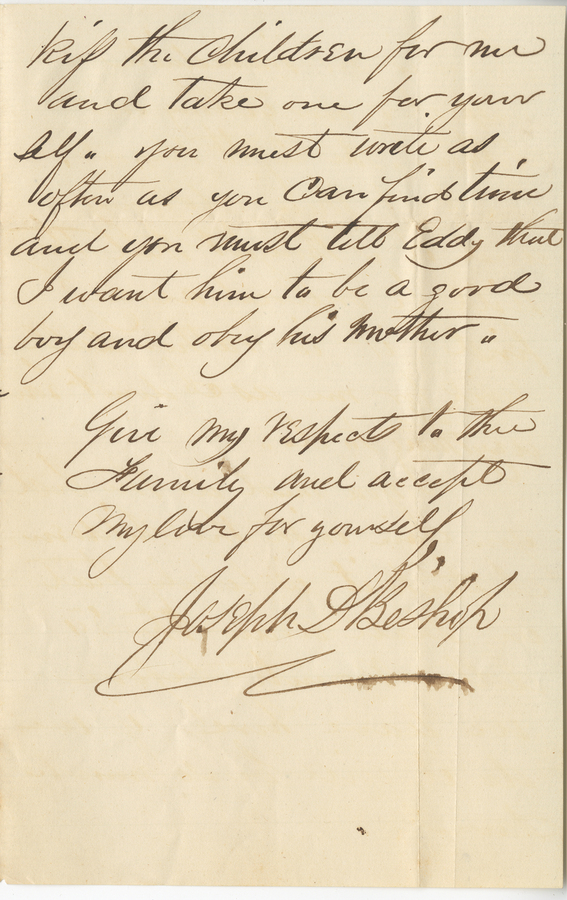 Kiss the children for me
and take one for your
self. you must write as
often as you Can find time
and you must tell Eddy that
I want him to be a good
boy and obey his Mother.
Give my respects to the
Family and accept
My love for yourself
Joseph S Beshop